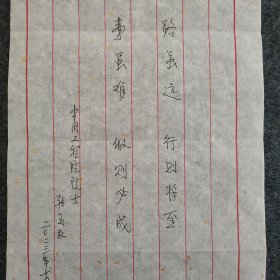 路虽远 行则将至
事虽难 做则必成
中国工程院院士
二〇二三年